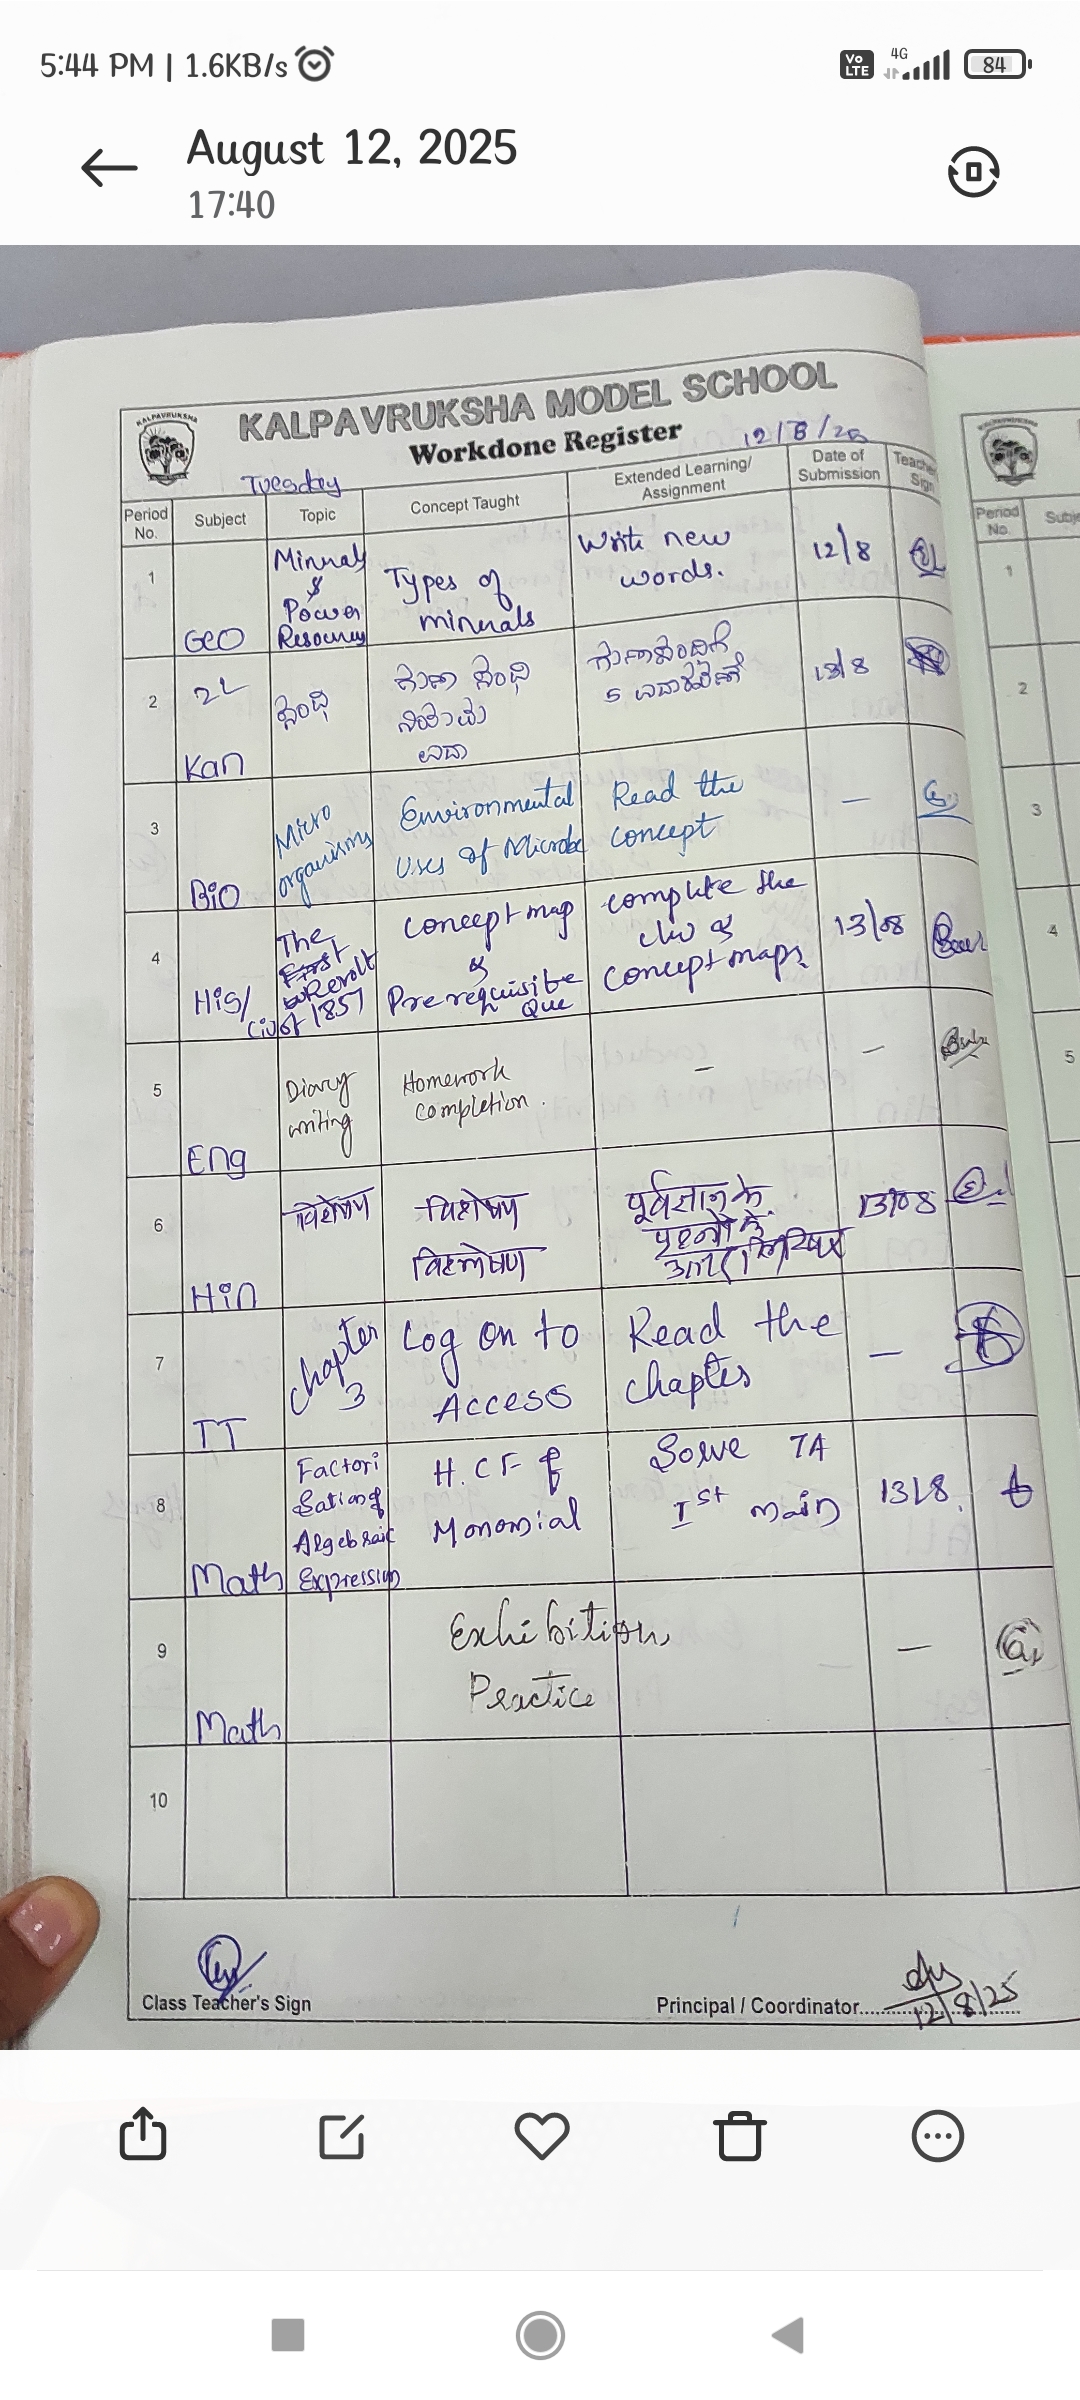 5:44 PM | 1.6KB/s
Vo LTE 4G 84
August 12, 2025
17:40
KALPAVRUKSHA
KALPAVRUKSHA MODEL SCHOOL
Workdone Register
12/8/25
Tuesday
Period No. Subject Topic Concept Taught Extended Learning/ Assignment Date of Submission Teacher Sign
1 Geo Minrals & Power Resources Types of minerals Write new words. 12/8
2 2L Kan ಸಂಧಿ ಗುಣ ಸಂಧಿ ನಿಯಮ 5 13/8
3 Bio Micro organisms Environmental Uses of Microbe Read the concept —
4 His/ Civ The First Revolt of 1857 Concept map & Prerequisite Que complete the & Concept maps 13/08
5 Eng Diary writing Homework completion. — —
6 Hin विशेषण विशेषण विश्लेषण पूर्वज्ञान के प्रश्नों के 13/08
7 TT Chapter 3 Log on to Access Read the chapter —
8 Math Factori sation of Algebraic Expression H.C.F of Monomial Solve 7A Ist main 13/8.
9 Math Exhibition, Practice —
10
Class Teacher's Sign
Principal / Coordinator
12/8/25
Period No.
1
2
3
4
5